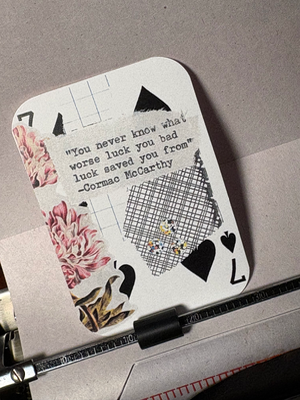 7
"You never know what
worse luck you bad
luck saved you from"
-Cormac McCarthy
7